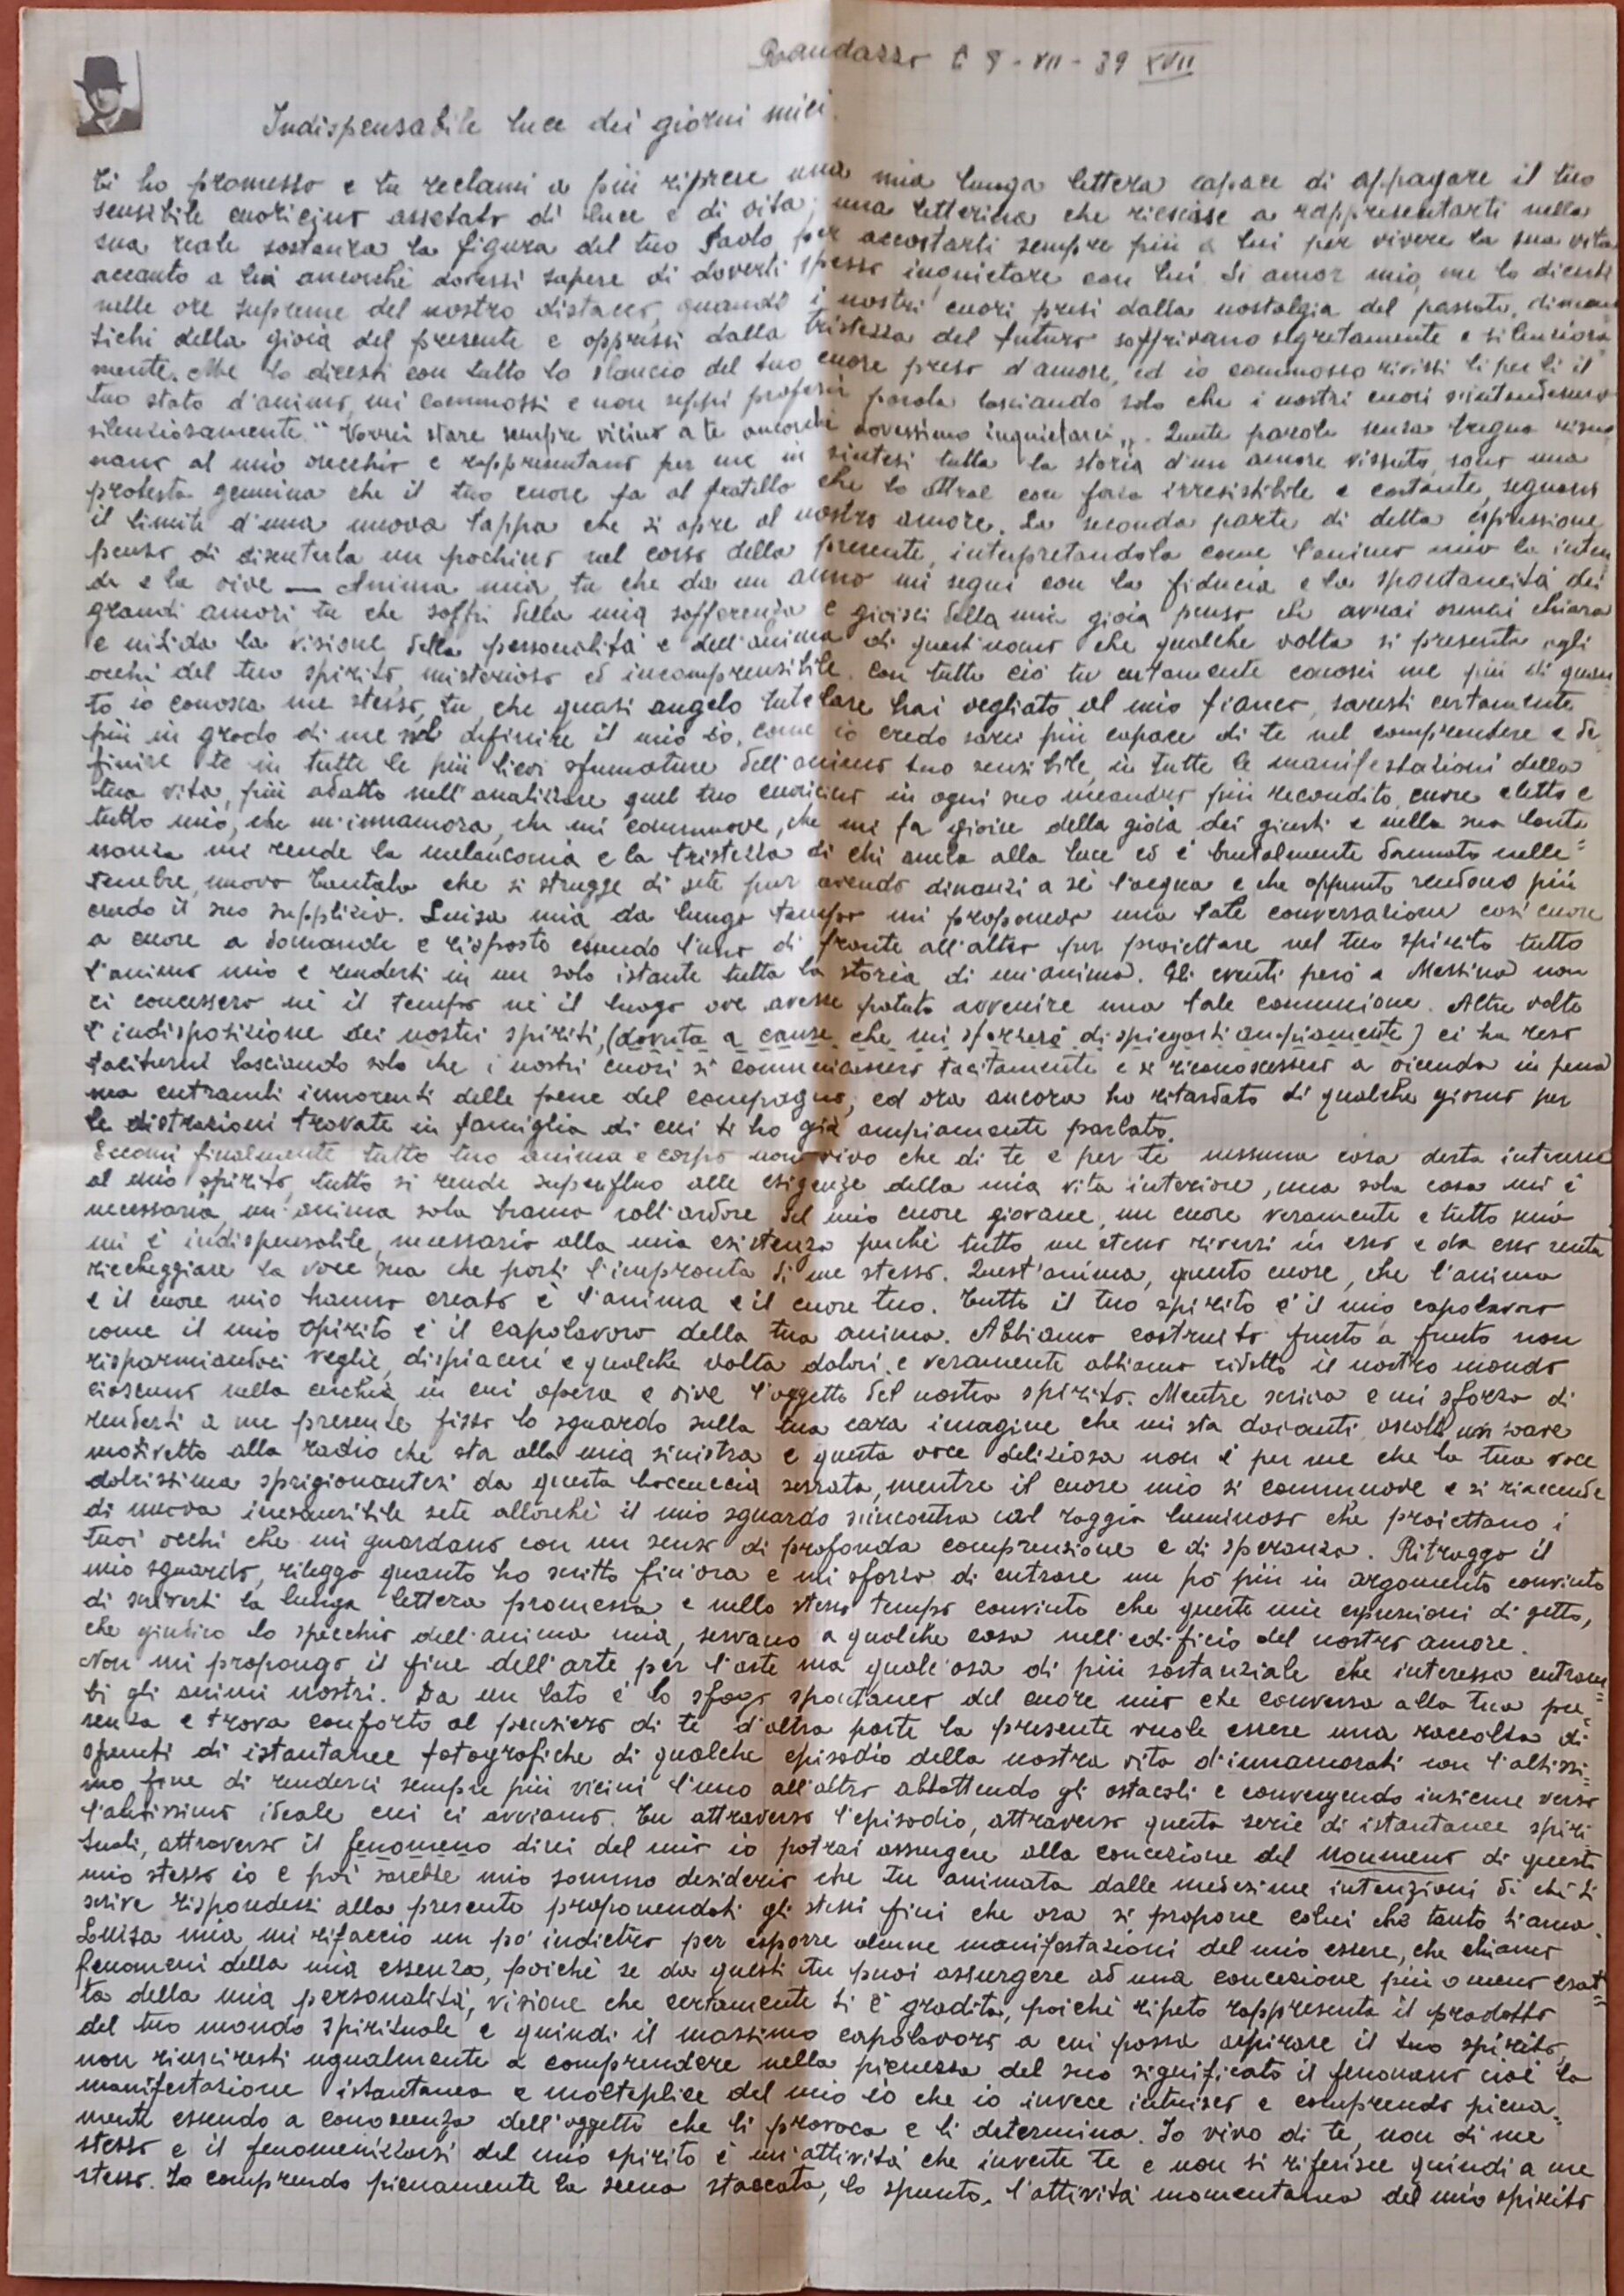 Randazzo li 8 - VII - 39 XVII
Indispensabile luce dei giorni miei
Ti ho promesso e tu reclami a più riprese una mia lunga lettera capace di appagare il tuo
sensibile cuoricino assetato di luce e di vita, una letterina che riescisse a rappresentarti nella
sua reale sostanza la figura del tuo Paolo per accostarti sempre più a lui per vivere la sua vita
accanto a lui ancorché dovessi sapere di doverti spesso inquietare con lui. Si amor mio, me lo dicesti
nelle ore supreme del nostro distacco, quando i nostri cuori presi dalla nostalgia del passato, dimen
tichi della gioia del presente e oppressi dalla tristezza del futuro soffrivano segretamente e silenziosa
mente. Me lo dicesti con tutto lo slancio del tuo cuore preso d'amore, ed io commosso rivissi li per li il
tuo stato d'animo, mi commossi e non seppi proferir parola lasciando solo che i nostri cuori s'intendessero
silenziosamente. "Vorrei stare sempre vicino a te ancorché dovessimo inquietarci". Queste parole senza tregua risuo
nano al mio orecchio e rappresentano per me in sintesi tutta la storia d'un amore vissuto, sono una
protesta genuina che il tuo cuore fa al fratello che lo attrae con forza irresistibile e costante, segnano
il limite d'una nuova tappa che si apre al nostro amore. La seconda parte di detta espressione
penso di discuterla un pochino nel corso della presente, interpretandola come l'animo mio la inten
de e la vive — Anima mia, tu che da un anno mi segui con la fiducia e la spontaneità dei
grandi amori, tu che soffri della mia sofferenza e gioisci della mia gioia penso che avrai oramai chiara
e nitida la visione della personalità e dell'anima di quest'uomo che qualche volta si presenta agli
occhi del tuo spirito, misterioso ed incomprensibile. Con tutto ciò tu certamente conosci me più di quan
to io conosca me stesso, tu, che quasi angelo tutelare hai vegliato al mio fianco, saresti certamente
più in grado di me nel definire il mio io, come io credo sarei più capace di te nel comprendere e de
finire te in tutte le più lievi sfumature dell'animo tuo sensibile, in tutte le manifestazioni della
tua vita, più adatto nell'analizzare quel tuo cuoricino in ogni suo meandro più recondito, cuore eletto e
tutto mio, che m'innamora, che mi commuove, che mi fa gioire della gioia dei giusti e nella sua lonta
nanza mi rende la melanconia e la tristezza di chi anela alla luce ed è brutalmente dannato nelle
tenebre, nuovo Tantalo che si strugge di sete pur avendo dinanzi a sé l'acqua e che appunto rendono più
crudo il suo supplizio. Luisa mia da lungo tempo mi proponevo una tale conversazione così cuore
a cuore a domande e risposte essendo l'uno di fronte all'altro per proiettare nel tuo spirito tutto
l'animo mio e renderti in un solo istante tutta la storia di un'anima. Gli eventi però a Messina non
ci concessero né il tempo né il luogo ove avesse potuto avvenire una tale comunione. Altre volte
l'indisposizione dei nostri spiriti, (dovuta a cause che mi sforzerò di spiegarti ampiamente) ci ha reso
taciturni lasciando solo che i nostri cuori si comunicassero tacitamente e si riconoscessero a vicenda in pena
ma entrambi innocenti delle pene del compagno, ed ora ancora ho ritardato di qualche giorno per
le distrazioni trovate in famiglia di cui ti ho già ampiamente parlato.
Eccomi finalmente tutto tuo anima e corpo non vivo che di te e per te nessuna cosa desta interesse
al mio spirito, tutto si rende superfluo alle esigenze della mia vita interiore, una sola cosa mi è
necessaria, un'anima sola bramo coll'ardore del mio cuore giovane, un cuore veramente e tutto mio
mi è indispensabile, necessario alla mia esistenza perché tutto me stesso riversi in esso e da esso senta
riecheggiare la voce sua che porti l'impronta di me stesso. Quest'anima, questo cuore, che l'anima
e il cuore mio hanno creato è l'anima e il cuore tuo. Tutto il tuo spirito è il mio capolavoro
come il mio spirito è il capolavoro della tua anima. Abbiamo costruito punto a punto non
risparmiandoci veglie, dispiaceri e qualche volta dolori, e veramente abbiamo ridotto il nostro mondo
ciascuno nella cerchia in cui opera e vive l'oggetto del nostro spirito. Mentre scrivo e mi sforzo di
renderti a me presente, fisso lo sguardo sulla tua cara imagine che mi sta davanti, ascolto un soave
motivetto alla radio che sta alla mia sinistra e questa voce deliziosa non è per me che la tua voce
dolcissima sprigionantesi da questa boccuccia serrata, mentre il cuore mio si commuove e si riaccende
di nuova inesauribile sete allorché il mio sguardo s'incontra col raggio luminoso che proiettano i
tuoi occhi che mi guardano con un senso di profonda comprensione e di speranza. Ritraggo il
mio sguardo, rileggo quanto ho scritto fin'ora e mi sforzo di entrare un pò più in argomento convinto
di scriverti la lunga lettera promessa e nello stesso tempo convinto che queste mie espressioni di getto,
che giudico lo specchio dell'anima mia, servano a qualche cosa nell'edificio del nostro amore.
Non mi propongo il fine dell'arte per l'arte ma qualcosa di più sostanziale che interessa entram=
bi gli animi nostri. Da un lato è lo sfogo spontaneo del cuore mio che conversa alla tua pre=
senza e trova conforto al pensiero di te d'altra parte la presente vuole essere una raccolta di
spunti di istantanee fotografiche di qualche episodio della nostra vita d'innamorati con l'altissi=
mo fine di renderci sempre più vicini l'uno all'altro abbattendo gli ostacoli e convergendo insieme verso
l'altissimo ideale cui ci avviamo. Tu attraverso l'episodio, attraverso questa serie di istantanee spiri
tuali, attraverso il fenomeno direi del mio io potrai assurgere alla concezione del noumeno di questo
mio stesso io e poi sarebbe mio sommo desiderio che tu animata dalle medesime intenzioni di chi ti
scrive rispondessi alla presente proponendoti gli stessi fini che ora si propone colui che tanto ti ama.
Luisa mia, mi rifaccio un po' indietro per esporre alcune manifestazioni del mio essere, che chiamo
fenomeni della mia essenza, poiché se da questi tu puoi assurgere ad una concezione più o meno esat=
ta della mia personalità, visione che certamente ti è gradita, poiché ripeto rappresenta il prodotto
del tuo mondo spirituale e quindi il massimo capolavoro a cui possa aspirare il tuo spirito,
non riusciresti ugualmente a comprendere nella pienezza del suo significato il fenomeno cioè la
manifestazione istantanea e molteplice del mio io che io invece intuisco e comprendo piena=
mente essendo a conoscenza dell'oggetto che li provoca e li determina. Io vivo di te, non di me
stesso e il fenomenizzarsi del mio spirito è un'attività che investe te e non si riferisce quindi a me
stesso. Io comprendo pienamente la scena staccata, lo spunto, l'attività momentanea del mio spirito